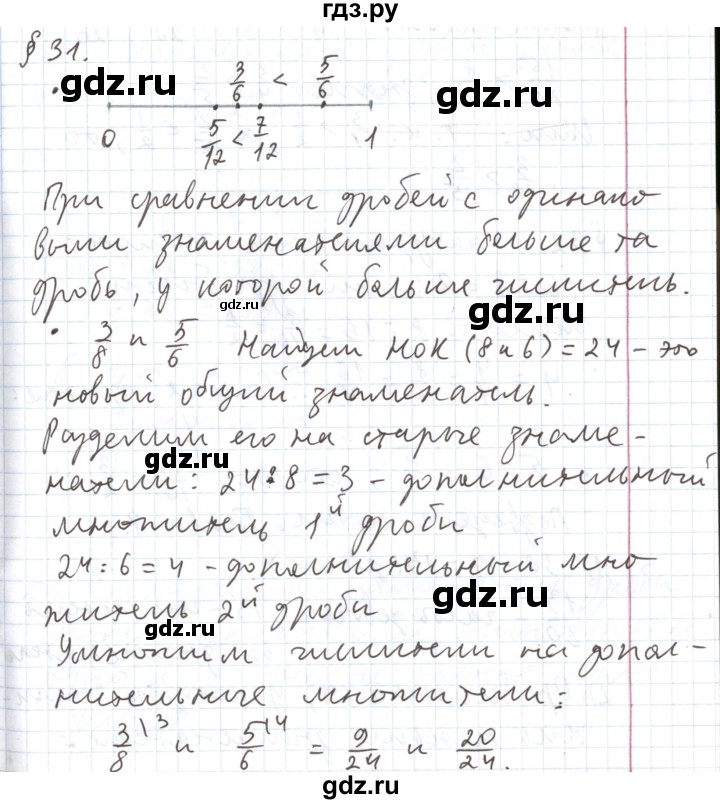 гдз.ру
§ 31.
gdz.ru
gdz.ru
• 3/6 < 5/6
0 5/12 < 7/12 1
При сравнении дробей с одинако
выми знаменателями больше та
дробь, у которой больше числитель.
gdz.ru
gdz.ru
• 3/8 и 5/6 Найдем НОК (8 и 6) = 24 – это
новый общий знаменатель.
Разделим его на старые знаме-
gdz.ru
натели: 24:8 = 3 – дополнительный
множитель 1й дроби
24 : 6 = 4 – дополнительный мно
gdz.ru
житель 2й дроби
gdz.ru
Умножим числители на допол-
нительные множители:
3/8 |3 и 5/6 |4 = 9/24 и 20/24.
gdz.ru